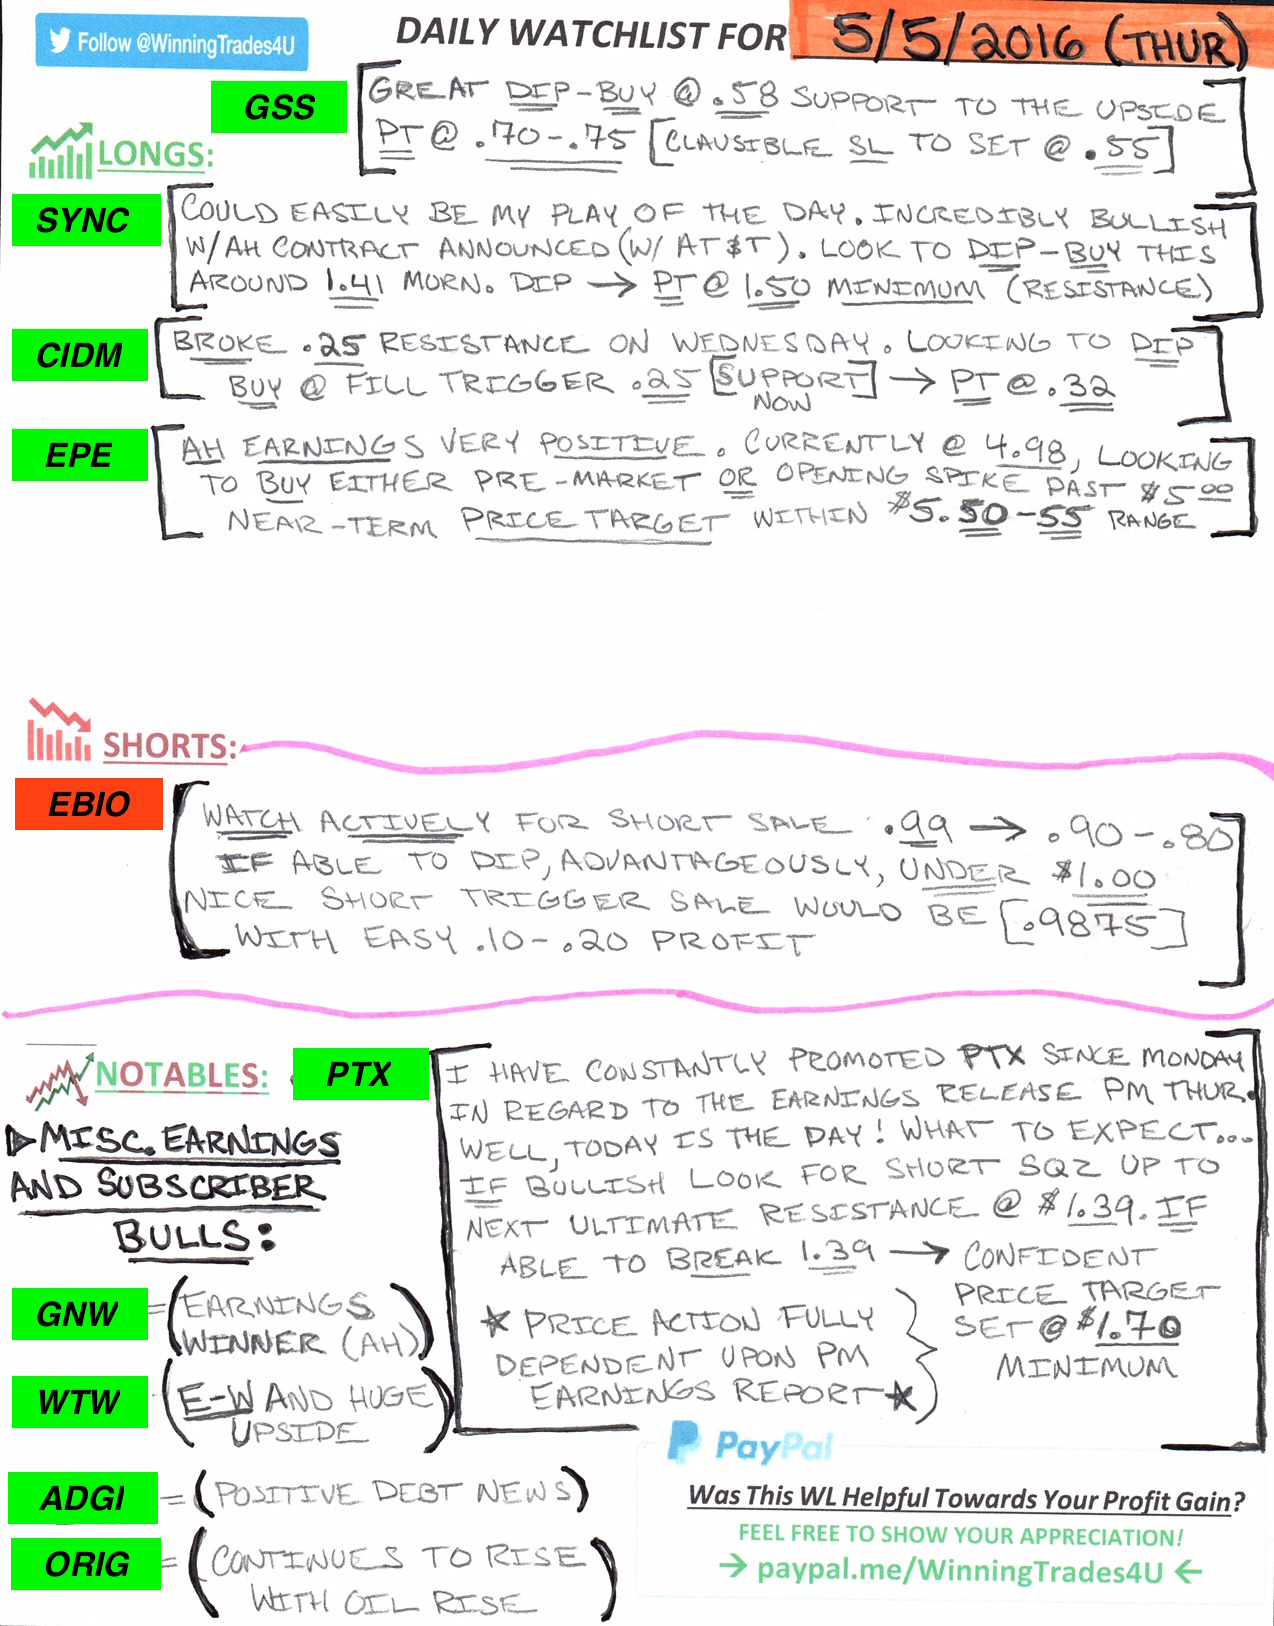 Follow @WinningTrades4U
DAILY WATCHLIST FOR 5/5/2016 (THUR)
GSS
GREAT DIP-BUY @ .58 SUPPORT TO THE UPSIDE
PT @ .70-.75 [CLAUSIBLE SL TO SET @ .55]
LONGS:
SYNC
COULD EASILY BE MY PLAY OF THE DAY. INCREDIBLY BULLISH
W/AH CONTRACT ANNOUNCED (W/ AT$T). LOOK TO DIP-BUY THIS
AROUND 1.41 MORN. DIP → PT @ 1.50 MINIMUM (RESISTANCE)
CIDM
BROKE .25 RESISTANCE ON WEDNESDAY. LOOKING TO DIP
BUY @ FILL TRIGGER .25 [SUPPORT] → PT @ .32
NOW
EPE
AH EARNINGS VERY POSITIVE. CURRENTLY @ 4.98, LOOKING
TO BUY EITHER PRE-MARKET OR OPENING SPIKE PAST $5.00
NEAR-TERM PRICE TARGET WITHIN $5.50-55 RANGE
SHORTS:
EBIO
WATCH ACTIVELY FOR SHORT SALE .99 → .90-.80
IF ABLE TO DIP, ADVANTAGEOUSLY, UNDER $1.00
NICE SHORT TRIGGER SALE WOULD BE [.9875]
WITH EASY .10-.20 PROFIT
NOTABLES:
PTX
I HAVE CONSTANTLY PROMOTED PTX SINCE MONDAY
IN REGARD TO THE EARNINGS RELEASE PM THUR.
WELL, TODAY IS THE DAY! WHAT TO EXPECT...
IF BULLISH LOOK FOR SHORT SQZ UP TO
NEXT ULTIMATE RESISTANCE @ $1.39. IF
ABLE TO BREAK 1.39 → CONFIDENT
PRICE TARGET
SET @ $1.70
MINIMUM
★ PRICE ACTION FULLY
DEPENDENT UPON PM
EARNINGS REPORT ★
▷ MISC. EARNINGS
AND SUBSCRIBER
BULLS:
GNW = (EARNINGS
WINNER (AH))
WTW (E-W AND HUGE
UPSIDE)
ADGI = (POSITIVE DEBT NEWS)
ORIG = (CONTINUES TO RISE
WITH OIL RISE)
PayPal
Was This WL Helpful Towards Your Profit Gain?
FEEL FREE TO SHOW YOUR APPRECIATION!
→ paypal.me/WinningTrades4U ←